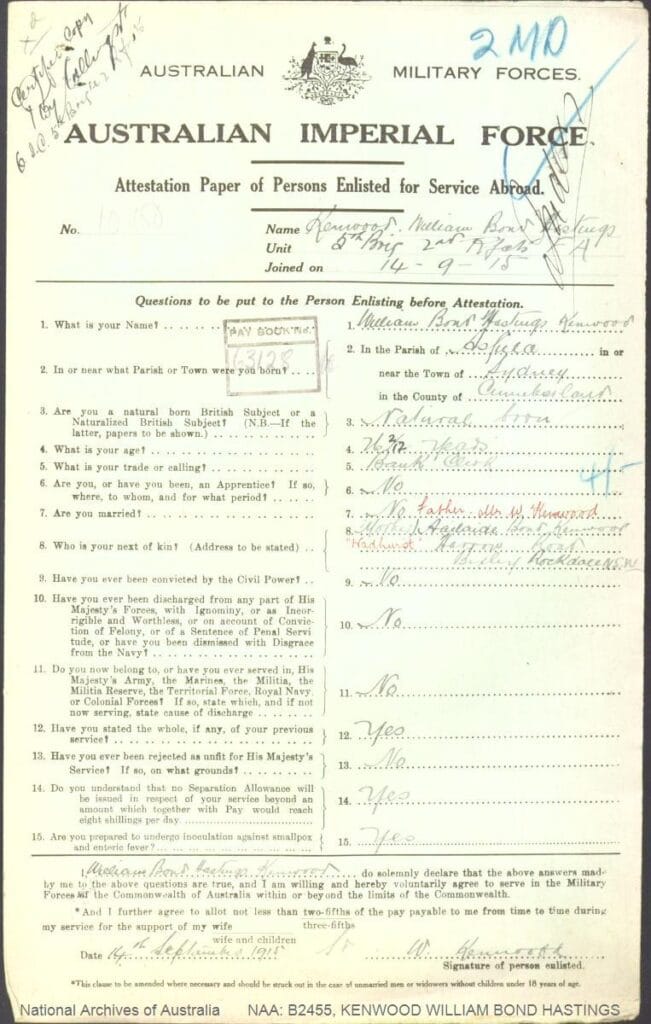 Certified Copy
2 MD
AUSTRALIAN MILITARY FORCES.
AUSTRALIAN IMPERIAL FORCE.
Attestation Paper of Persons Enlisted for Service Abroad.
No. Name Kenwood. William Bond Hastings
Unit 5th Brig 2nd F A
Joined on 14 - 9 - 15
Questions to be put to the Person Enlisting before Attestation.
1. What is your Name? 1. William Bond Hastings Kenwood
PAY BOOK No.
63128
2. In or near what Parish or Town were you born? 2. In the Parish of in or
near the Town of Sydney
in the County of Cumberland
3. Are you a natural born British Subject or a
Naturalized British Subject? (N.B.—If the
latter, papers to be shown.) 3. Natural born
4. What is your age? 4. 26 2/12 years
5. What is your trade or calling? 5. Bank Clerk
6. Are you, or have you been, an Apprentice? If so,
where, to whom, and for what period? 6. No
7. Are you married? 7. No Father Mr W. Kenwood
8. Who is your next of kin? (Address to be stated) 8. Mother Adelaide Bond Kenwood
Harrow Road
Bexley Rockdale N.S.W
9. Have you ever been convicted by the Civil Power? 9. No
10. Have you ever been discharged from any part of His
Majesty's Forces, with Ignominy, or as Incor-
rigible and Worthless, or on account of Convic-
tion of Felony, or of a Sentence of Penal Servi-
tude, or have you been dismissed with Disgrace
from the Navy? 10. No
11. Do you now belong to, or have you ever served in, His
Majesty's Army, the Marines, the Militia, the
Militia Reserve, the Territorial Force, Royal Navy
or Colonial Forces? If so, state which, and if not
now serving, state cause of discharge 11. No
12. Have you stated the whole, if any, of your previous
service? 12. Yes
13. Have you ever been rejected as unfit for His Majesty's
Service? If so, on what grounds? 13. No
14. Do you understand that no Separation Allowance will
be issued in respect of your service beyond an
amount which together with Pay would reach
eight shillings per day 14. Yes
15. Are you prepared to undergo inoculation against smallpox
and enteric fever? 15. Yes
I, William Bond Hastings Kenwood do solemnly declare that the above answers made
by me to the above questions are true, and I am willing and hereby voluntarily agree to serve in the Military
Forces of the Commonwealth of Australia within or beyond the limits of the Commonwealth.
*And I further agree to allot not less than two-fifths of the pay payable to me from time to time during
three-fifths
my service for the support of my wife
wife and children
Date 14th September 1915 W. Kenwood
Signature of person enlisted.
*This clause to be amended where necessary and should be struck out in the case of unmarried men or widowers without children under 18 years of age.
National Archives of Australia NAA: B2455, KENWOOD WILLIAM BOND HASTINGS